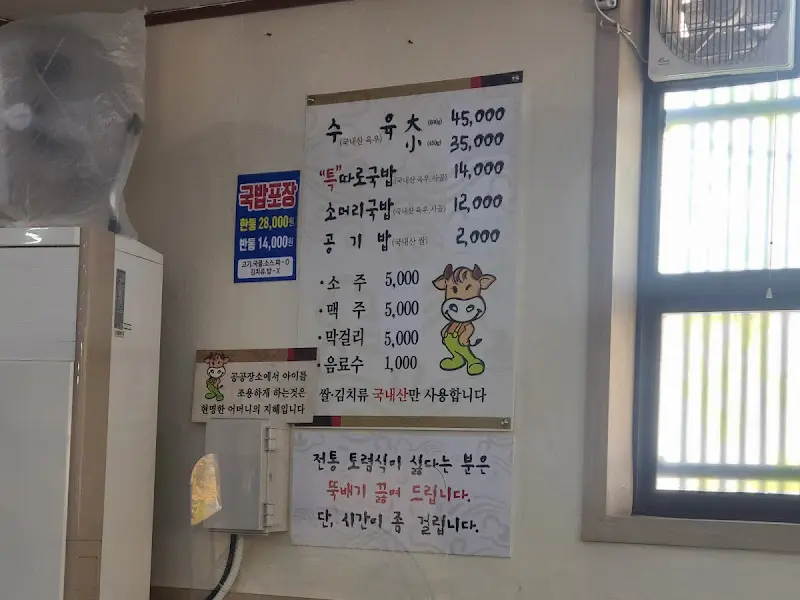 수 육 大 (600g) 45,000
(국내산 육우) 小 (450g) 35,000
"특"따로국밥 (국내산 육우, 사골) 14,000
소머리국밥 (국내산 육우, 사골) 12,000
공 기 밥 (국내산 쌀) 2,000
· 소 주 5,000
· 맥 주 5,000
· 막걸리 5,000
· 음료수 1,000
쌀·김치류 국내산만 사용합니다
국밥포장
한통 28,000원
반통 14,000원
고기.국물.소스.파 - O
김치류.밥 - X
공공장소에서 아이를
조용하게 하는것은
현명한 어머니의 지혜입니다
전통 토렴식이 싫다는 분은
뚝배기 끓여 드립니다.
단, 시간이 좀 걸립니다.